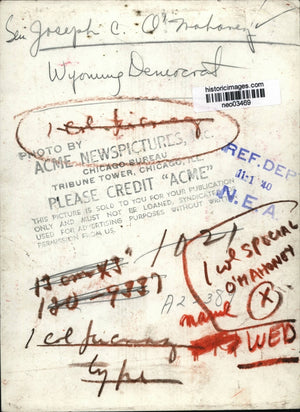 Sen Joseph C. O'Mahoney
Wyoming Democrat
historicimages.com
neo03469
1 col
PHOTO BY
ACME NEWSPICTURES,
CHICAGO BUREAU
TRIBUNE TOWER, CHICAGO, ILL.
PLEASE CREDIT "ACME"
THIS PICTURE IS SOLD TO YOU FOR YOUR PUBLICATION
ONLY AND MUST NOT BE LOANED, SYNDICATED OR
USED FOR ADVERTISING PURPOSES WITHOUT WRITTEN
PERMISSION FROM US.
REF. DEPT
40
N.E.A.
1021
1 col SPECIAL
O'MAHONEY
X
name
WED
1 col
type